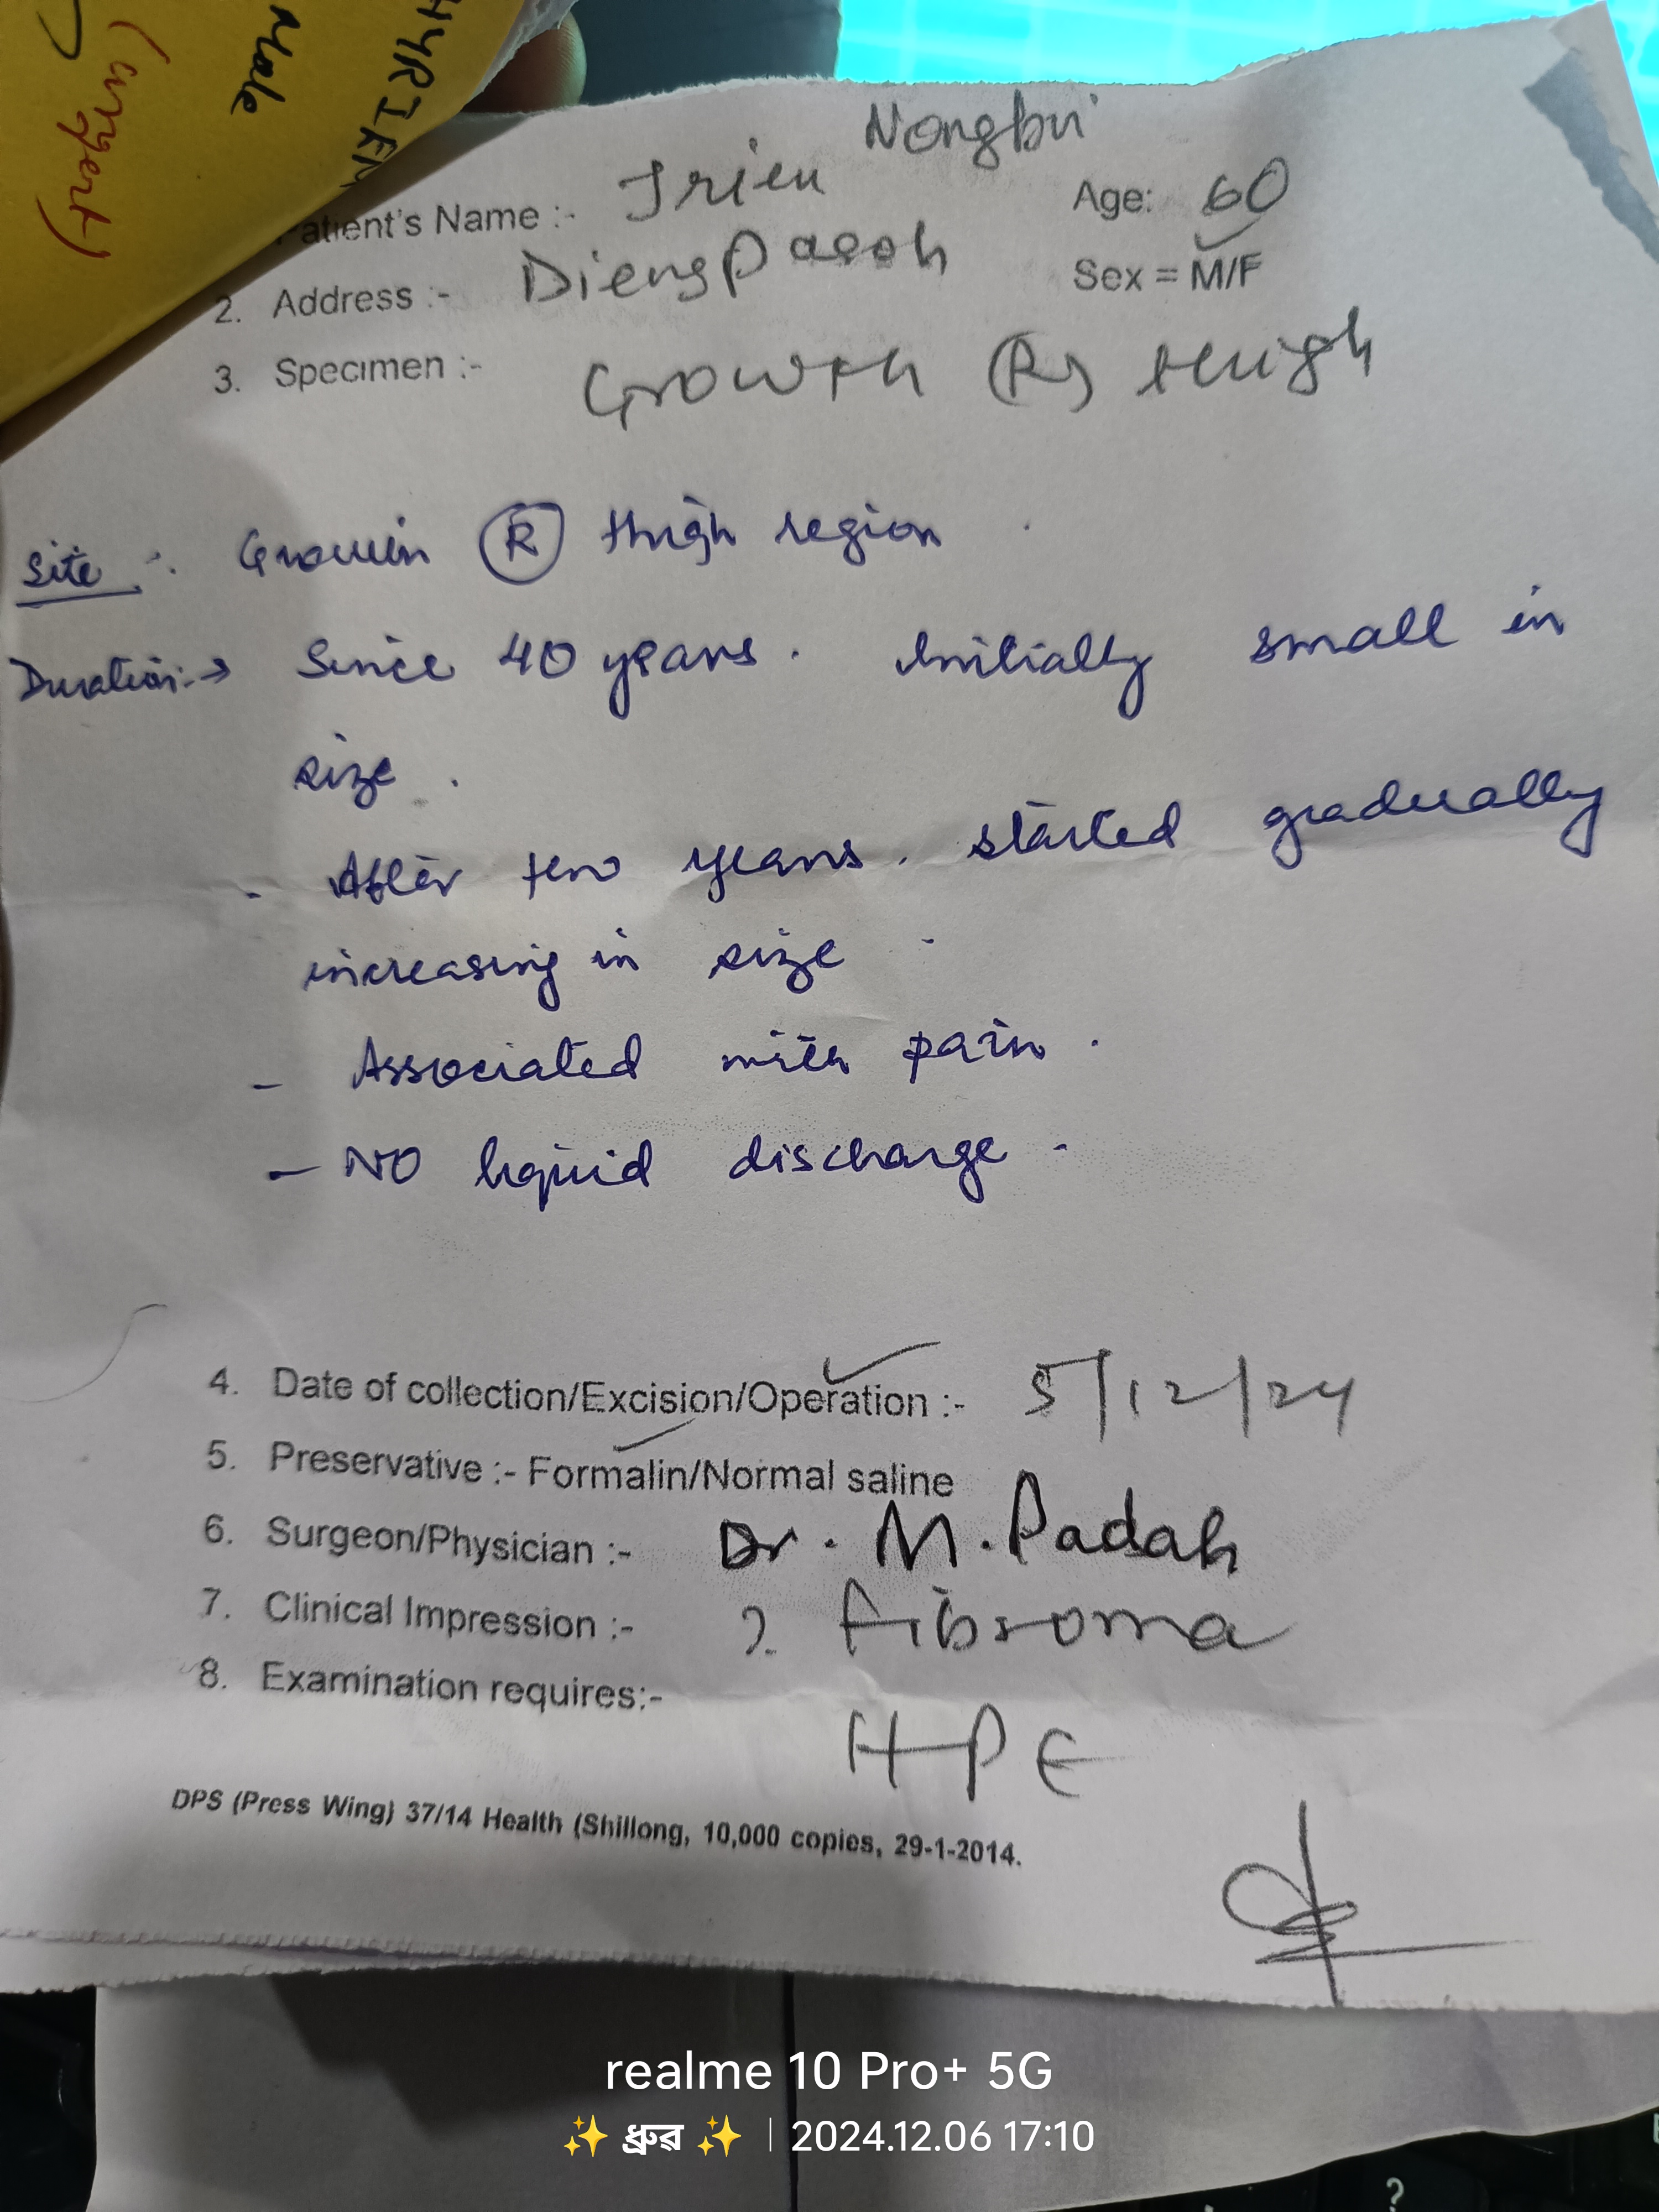 (urgent)
Male
HYRIEM
Nongbri
Patient's Name :- Trieu
Age: 60
2. Address :- Diengpasoh
Sex = M/F
3. Specimen :- Growth (R) thigh
Site :- Growth (R) thigh region
Duration :→ Since 40 years. Initially small in
size.
- After few years. started gradually
increasing in size
- Associated with pain.
- NO liquid discharge.
4. Date of collection/Excision/Operation :- 5/12/24
5. Preservative :- Formalin/Normal saline
6. Surgeon/Physician :- Dr. M. Padah
7. Clinical Impression :- ? Fibroma
8. Examination requires:-
HPE
DPS (Press Wing) 37/14 Health (Shillong, 10,000 copies, 29-1-2014.
realme 10 Pro+ 5G
✨ ধ্রুৱ ✨ | 2024.12.06 17:10
?